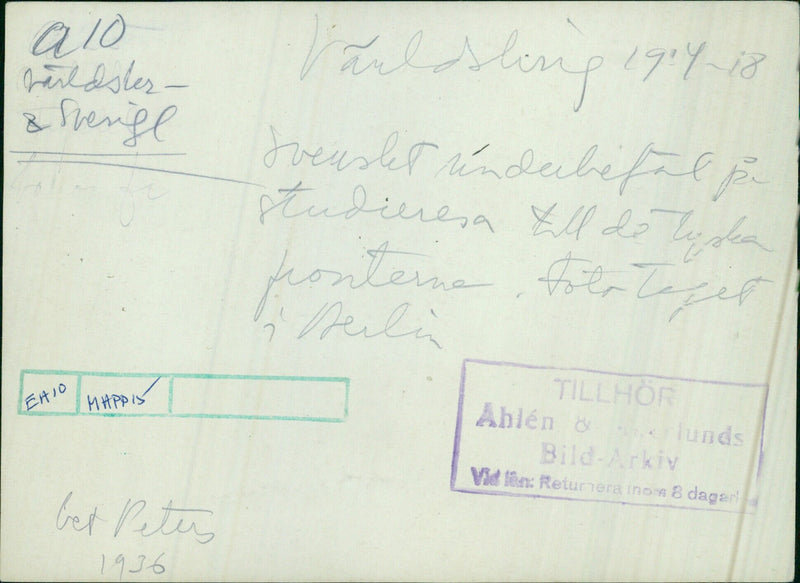 a10
världskr-
Sverige
Världskrig 1914-18
Svenskt underbefäl på
studieresa till de tyska
fronterna. Foto taget
i Berlin
EA10
MHPD15
TILLHÖR
Åhlén & Åkerlunds
Bild-Arkiv
Vid lån: Returnera inom 8 dagar!
bet Peters
1936